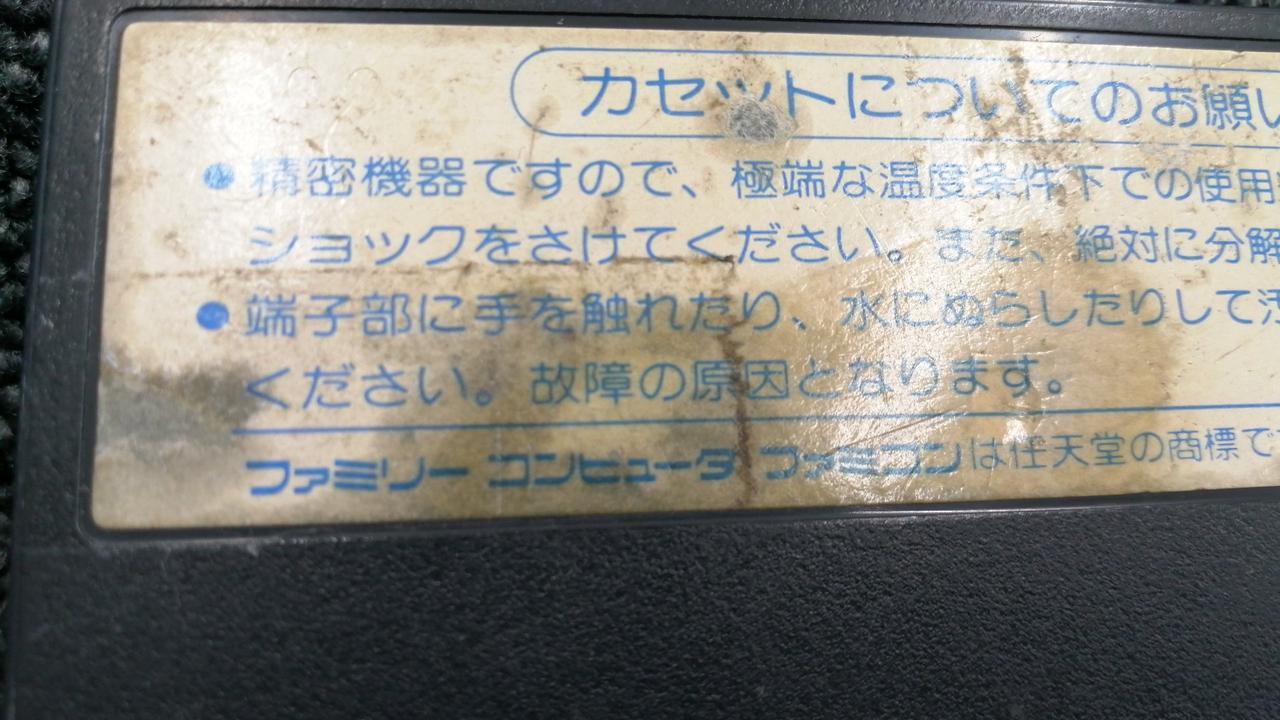 カセットについてのお願い
● 精密機器ですので、極端な温度条件下での使用
ショックをさけてください。また、絶対に分解
● 端子部に手を触れたり、水にぬらしたりして汚
ください。故障の原因となります。
ファミリー コンピュータ ファミコンは任天堂の商標で